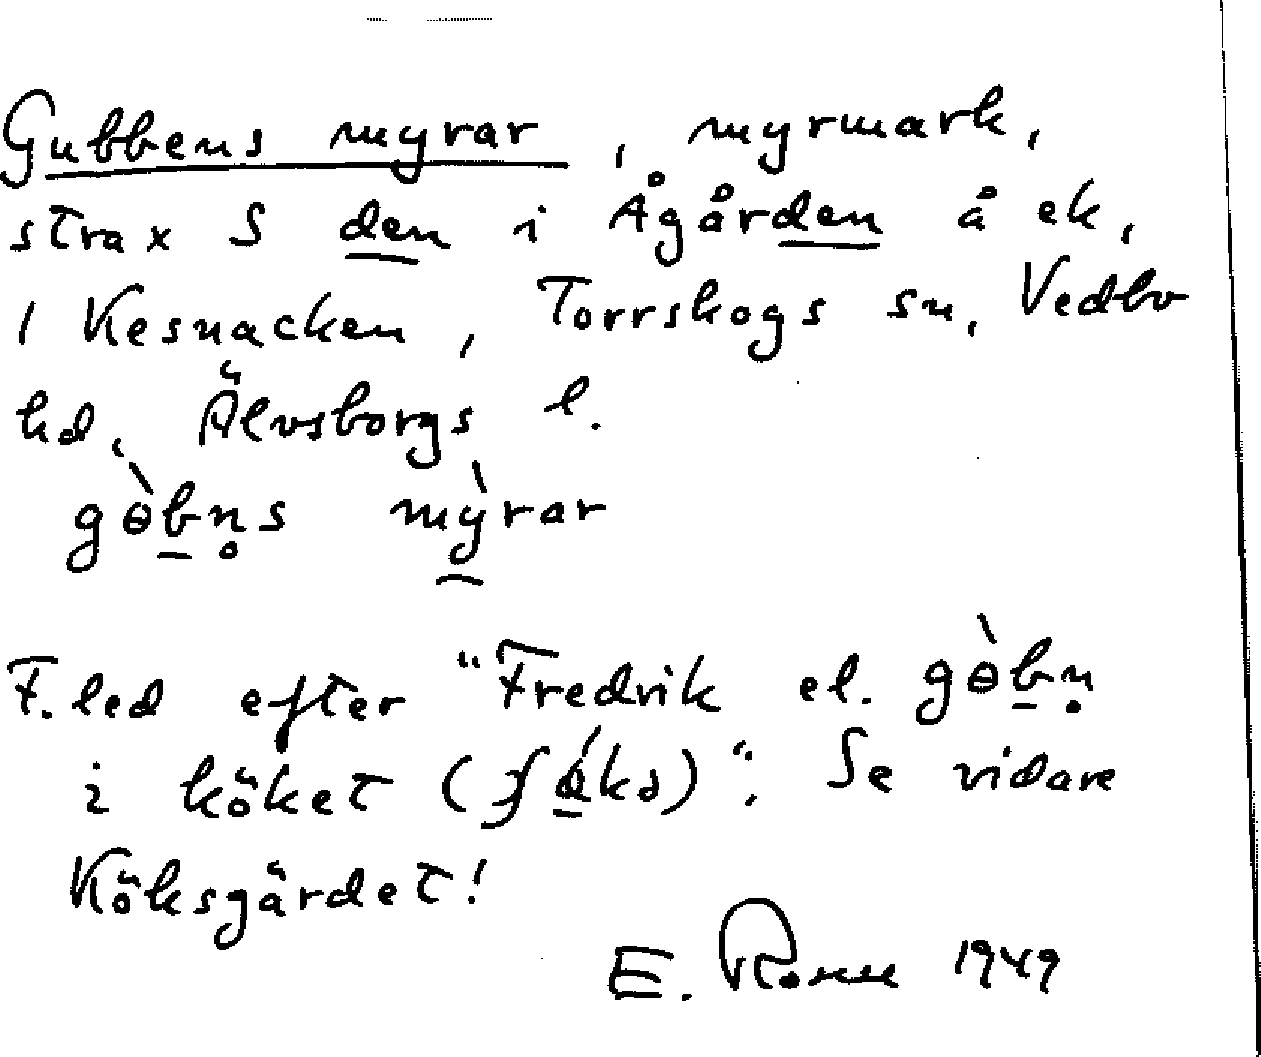 Gubbens myrar, myrmark,
strax S den i Ågården å ek,
1 Kesnacken, Torrskogs sn, Vedbo
hd, Älvsborgs l.
gɵ̀bn̥s mỳrar
F. led efter "Fredrik el. gɵ̀bn̥
i köket ( )". Se vidare
Köksgärdet!
E. 1949